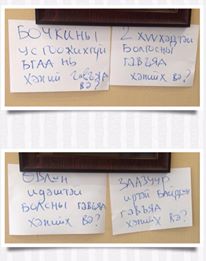 БОЧКИНЫ
УС ГООЖИХГҮЙ
БГАА НЬ
ХЭНИЙХ ГАВЪЯА
ВЭ?
2 ХҮҮХЭДТЭЙ
БОЛСНЫ
ГАВЪЯА
ХЭНИЙХ ВЭ?
ӨВЛӨН
ИДЭШТЭЙ
БОЛСНЫ ГАВЪЯА
ХЭНИЙХ ВЭ?
ЗААЗУУР
ИРТЭЙ БАЙДГИЙН
ГАВЪЯА
ХЭНИЙХ ВЭ?